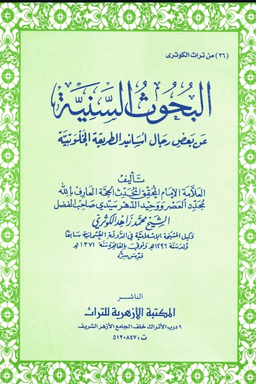 (٣٦) من تراث الكوثرى
البحوث السنية
عن بعض رجال أسانيد الطريقة الخلوتية
تأليف
العلامة الإمام المحقق المحدث الحجة العارف بالله
مجدد العصر ووحيد الدهر سيدي صاحب الفضل
الشيخ محمد زاهد الكوثري
وكيل المشيخة الإسلامية في الدولة العثمانية سابقا
ولد سنة ١٢٩٦هـ وتوفي بالقاهرة سنة ١٣٧١هـ
قدس سره
الناشر
المكتبة الأزهرية للتراث
٩ درب الأتراك خلف الجامع الأزهر الشريف
ت: ٥١٢٠٨٤٧